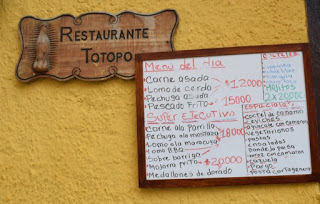 RESTAURANTE
TOTOPO
Menu del Dia
Carne asada
Lomo de cerdo
Pechuga asada
Pescado frito
$12000
15000
Super Ejecutivo
Carne ala parrilla
Pechuga ala mostaza
Lomo ala maracuya
Lomo BBQ
Sobre barriga
Mojarra frito
Medallones de dorado
18000
$20000
Mojitos
2x20000
Especiales
Coctel de camaron
ceviches
vegetarianos
pastas
ensaladas
cazuela
Pargo
Pasta cartagenera